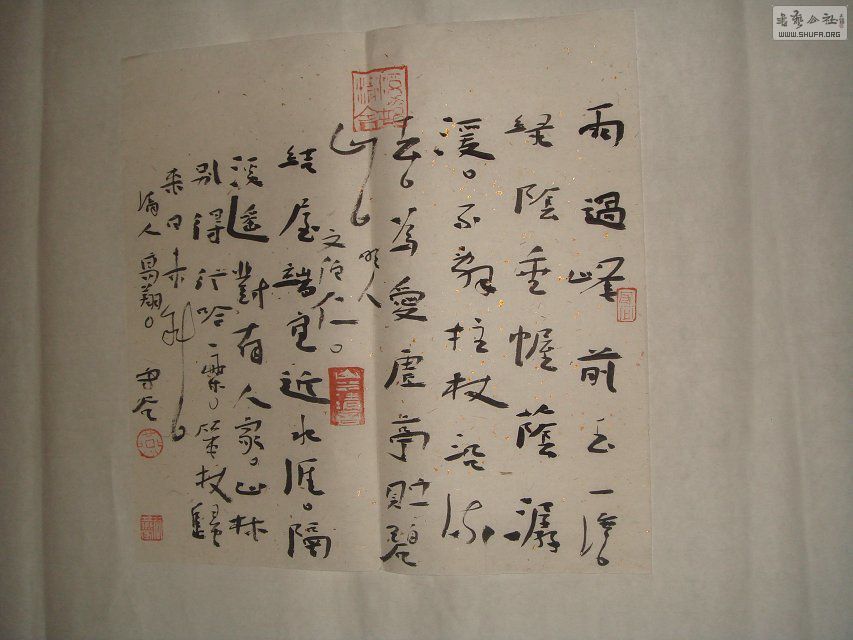 雨過峰前玉一灣。
綠陰垂幄蔭潺
湲。不辭拄杖沿流
去。為愛虛亭貯碧
山。
明人
文伯仁。
結屋端宜近水涯。隔
溪遙對有人家。山林
別得行吟樂。策杖歸
來日未斜
清人 高翔。
書藝公社
WWW.SHUFA.ORG